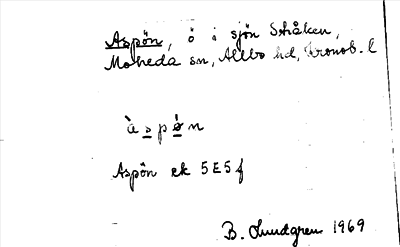 Aspön, ö i sjön Stråken,
Moheda sn, Allbo hd, Kronob. l
àspön
Aspön ek 5E5f
B. Lundgren 1969